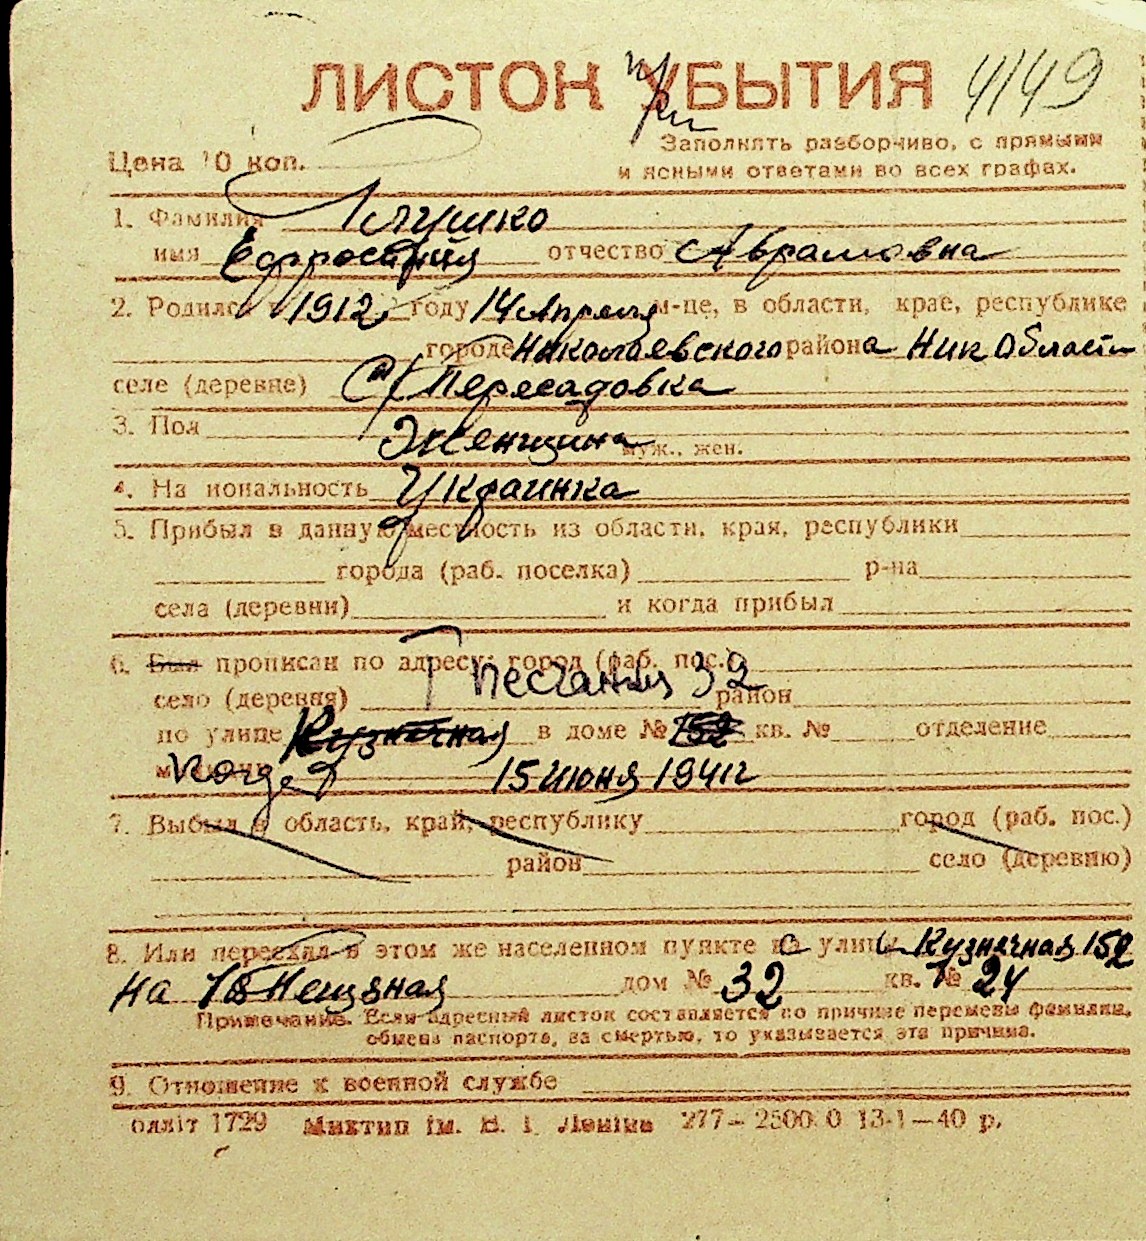 ЛИСТОК УБЫТИЯ 4149
при
Цена 10 коп.
Заполнять разборчиво, с прямыми
и ясными ответами во всех графах.
1. Фамилия Глушко
имя Ефросиния отчество Аврамовна
2. Родился в 1912 году 14 Апреля м-це, в области, крае, республике
городе Николаевского района Ник Области
селе (деревне) С/ Пересадовка
3. Пол Женщина муж., жен.
4. Национальность Украинка
5. Прибыл в данную местность из области, края, республики
города (раб. поселка) р-на
села (деревни) и когда прибыл
6. Был прописан по адресу: город (раб. пос.)
село (деревня) Песчанная 32 район
по улице Кузнечная в доме № 152 кв. № отделение
15 июня 1941г
7. Выбыл в область, край, республику город (раб. пос.)
район село (деревню)
8. Или переехал в этом же населенном пункте с улицы Кузнечная 152
на дом № 32 кв. № 24
Примечание. Если адресный листок составляется по причине перемены фамилии,
обмена паспорта, за смертью, то указывается эта причина.
9. Отношение к военной службе
олліт 1729 Миктип ім. В. І. Леніна 277—2500.0 13-1—40 р.